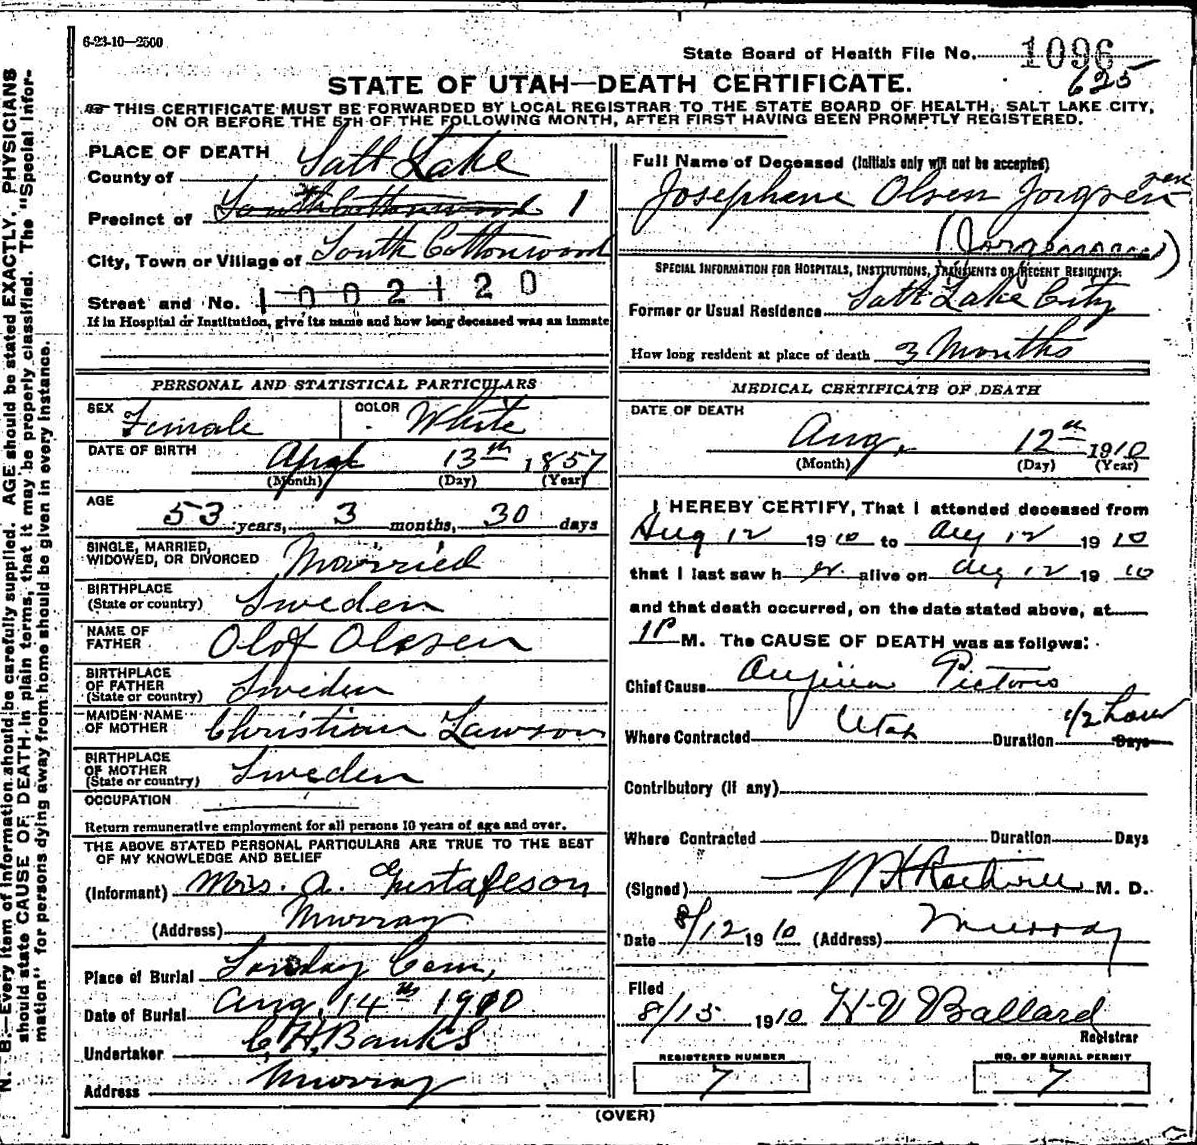 6-23-10—2500
State Board of Health File No. 1096
625
STATE OF UTAH—DEATH CERTIFICATE.
THIS CERTIFICATE MUST BE FORWARDED BY LOCAL REGISTRAR TO THE STATE BOARD OF HEALTH, SALT LAKE CITY,
ON OR BEFORE THE 5TH OF THE FOLLOWING MONTH, AFTER FIRST HAVING BEEN PROMPTLY REGISTERED.
PLACE OF DEATH
County of Salt Lake
Precinct of South Cottonwood 1
City, Town or Village of South Cottonwood
Street and No. 1002120
If in Hospital or Institution, give its name and how long deceased was an inmate
Full Name of Deceased (Initials only will not be accepted)
Josephene Olsen
SPECIAL INFORMATION FOR HOSPITALS, INSTITUTIONS, TRANSIENTS OR RECENT RESIDENTS.
Former or Usual Residence Salt Lake City
How long resident at place of death 3 Months
PERSONAL AND STATISTICAL PARTICULARS
SEX Female COLOR White
DATE OF BIRTH April 13th 1857
(Month) (Day) (Year)
AGE 53 years, 3 months, 30 days
SINGLE, MARRIED,
WIDOWED, OR DIVORCED Married
BIRTHPLACE
(State or country) Sweden
NAME OF
FATHER Olof Olssen
BIRTHPLACE
OF FATHER
(State or country) Sweden
MAIDEN NAME
OF MOTHER Christian Lawson
BIRTHPLACE
OF MOTHER
(State or country) Sweden
OCCUPATION
Return remunerative employment for all persons 10 years of age and over.
THE ABOVE STATED PERSONAL PARTICULARS ARE TRUE TO THE BEST
OF MY KNOWLEDGE AND BELIEF
(Informant) Mrs. A. Gustafeson
(Address) Murray
Place of Burial Cem,
Date of Burial Aug. 14th 1910
Undertaker C. H. Banks
Address Murray
MEDICAL CERTIFICATE OF DEATH
DATE OF DEATH
Aug. 12th 1910
(Month) (Day) (Year)
I HEREBY CERTIFY, That I attended deceased from
Aug 12 1910 to Aug 12 1910
that I last saw her alive on Aug 12 1910
and that death occurred, on the date stated above, at
1P M. The CAUSE OF DEATH was as follows:
Chief Cause Angina Pictoris
Where Contracted Utah Duration 1/2 hour Days
Contributory (if any)
Where Contracted Duration Days
(Signed) M. D.
Date 8/12 1910 (Address) Murray
Filed
8/15 1910 H V Ballard
Registrar
REGISTERED NUMBER
7
NO. OF BURIAL PERMIT
7
(OVER)
N. B.—Every item of information should be carefully supplied. AGE should be stated EXACTLY. PHYSICIANS
should state CAUSE OF DEATH in plain terms, that it may be properly classified. The "Special Infor-
mation" for persons dying away from home should be given in every instance.